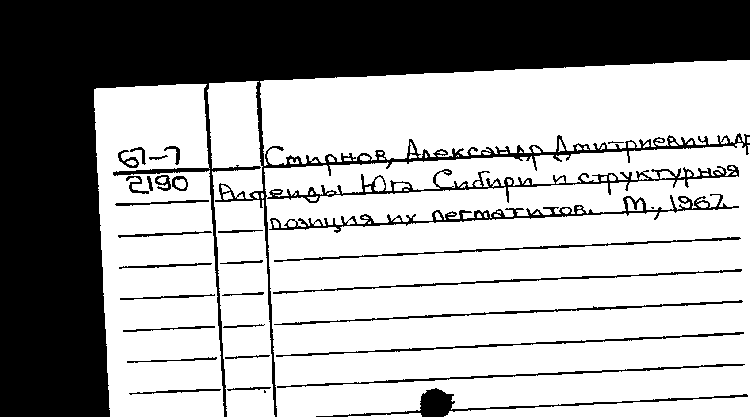 67-7 Смирнов, Александр Дмитриевич и др
2190 Алгеиды Юга Сибири и структурная
позиция их пегматитов. М., 1967.